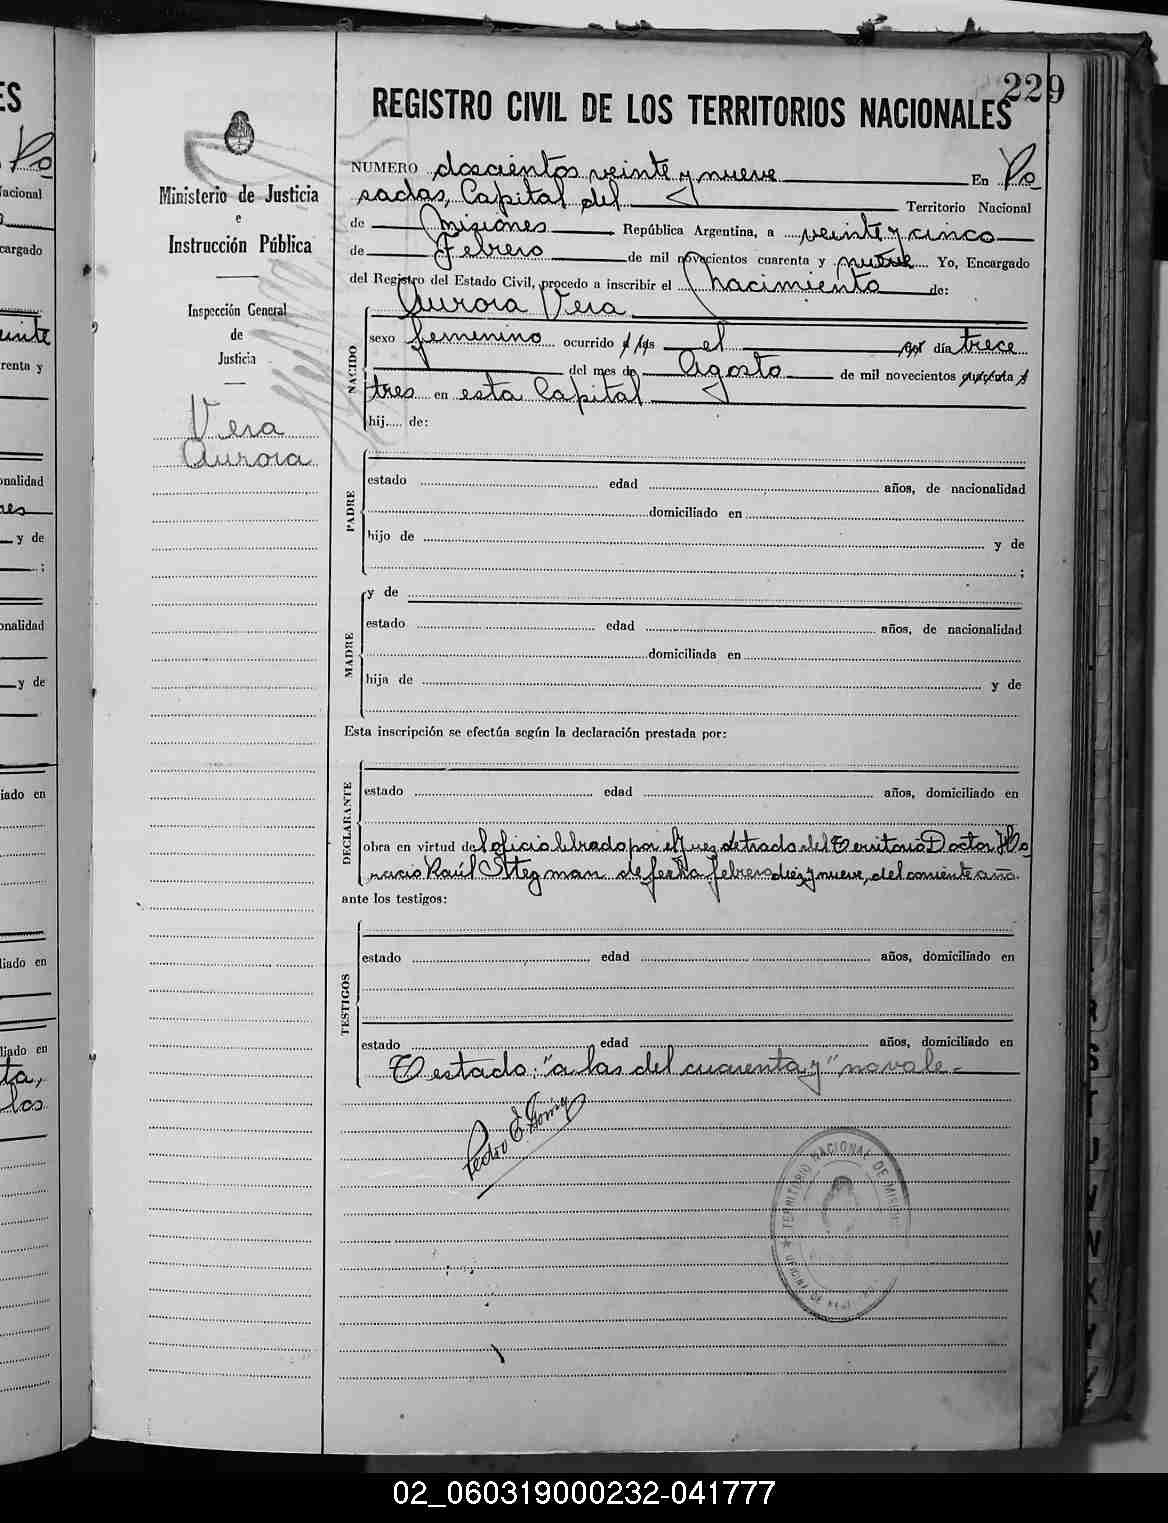 229
REGISTRO CIVIL DE LOS TERRITORIOS NACIONALES
Ministerio de Justicia
e
Instrucción Pública
Inspección General
de
Justicia
Vera
Aurora
NUMERO doscientos veinte y nueve En Po
sadas, Capital del Territorio Nacional
de Misiones República Argentina, a veinte y cinco
de Febrero de mil novecientos cuarenta y nueve Yo, Encargado
del Registro del Estado Civil, procedo a inscribir el nacimiento de:
NACIDO
Aurora Vera
sexo femenino ocurrido a las el del día trece
del mes de Agosto de mil novecientos cuarenta y
tres en esta Capital
hij.... de:
PADRE
estado edad años, de nacionalidad
domiciliado en
hijo de y de
;
MADRE
y de
estado edad años, de nacionalidad
domiciliada en
hija de y de
Esta inscripción se efectúa según la declaración prestada por:
DECLARANTE
estado edad años, domiciliado en
obra en virtud del oficio librado por el Juez Letrado del Territorio Doctor Ho
racio Raúl Stegman de fecha febrero diez y nueve, del corriente año.
ante los testigos:
TESTIGOS
estado edad años, domiciliado en
estado edad años, domiciliado en
Testado: "a las del cuarenta y" no vale.-
Pedro E. Gomez
TERRITORIO NACIONAL DE MISIONES
ES
Po
Nacional
cargado
veinte
renta y
onalidad
y de
;
onalidad
y de
iado en
liado en
liado en
ta,
los
A
S
T
U
V
W
X
Y
Z
02_060319000232-041777